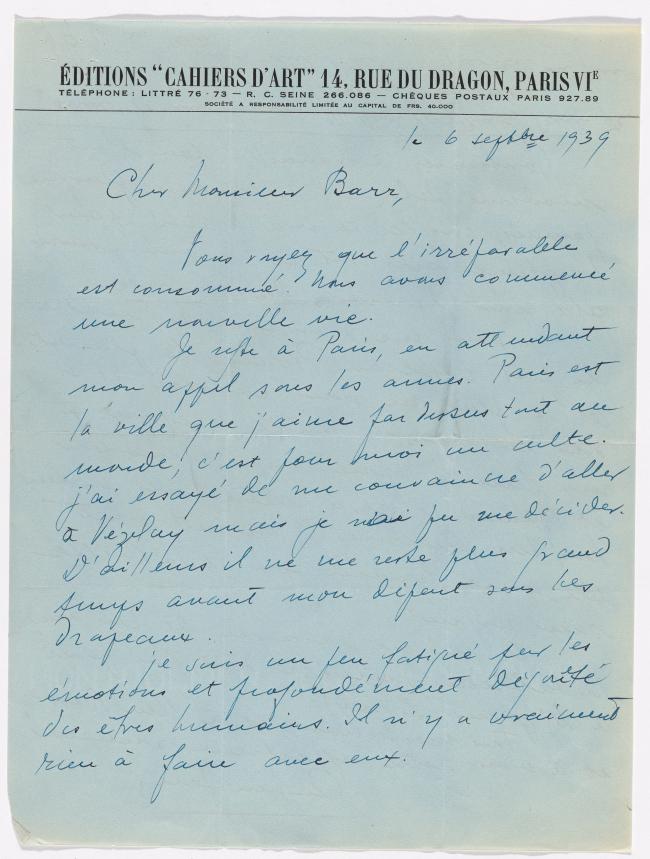 ÉDITIONS “CAHIERS D'ART” 14, RUE DU DRAGON, PARIS VIᴱ
TÉLÉPHONE : LITTRÉ 76 - 73 — R. C. SEINE 266.086 — CHÈQUES POSTAUX PARIS 927.89
SOCIÉTÉ A RESPONSABILITÉ LIMITÉE AU CAPITAL DE FRS. 40.000
le 6 septbre 1939
Cher Monsieur Barr,
Vous voyez que l'irréparable
est consommé. Nous avons commencé
une nouvelle vie.
Je reste à Paris, en attendant
mon appel sous les armes. Paris est
la ville que j'aime par dessus tout au
monde, c'est pour moi un culte.
j'ai essayé de me convaincre d'aller
a Vézelay mais je n'ai pu me décider.
D'ailleurs il ne me reste plus grand
temps avant mon départ sous les
drapeaux.
je suis un peu fatigué par les
émotions et profondément dégoûté
des êtres humains. Il n'y a vraiment
rien à faire avec eux.